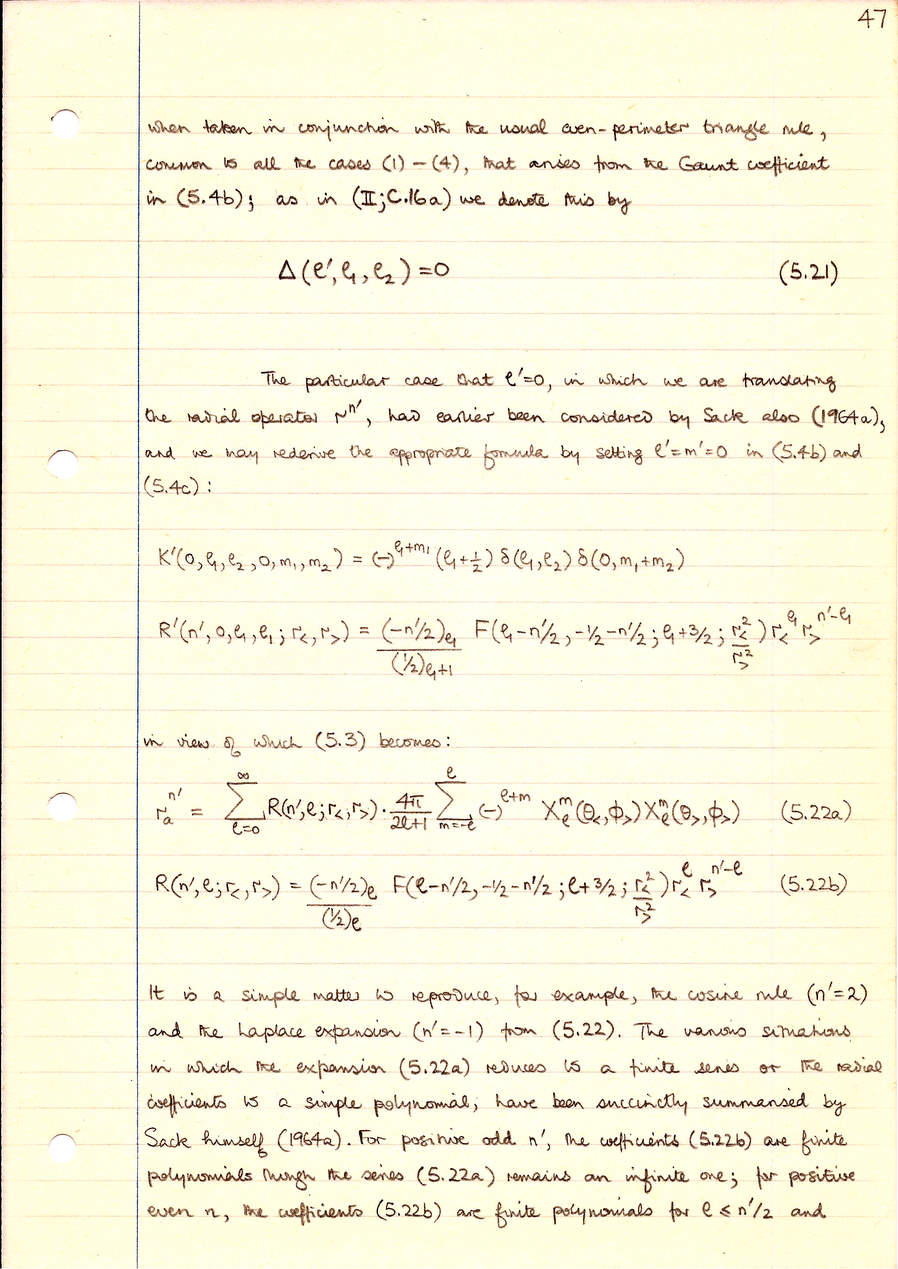 47
when taken in conjunction with the usual even-perimeter triangle rule,
common to all the cases (1) – (4), that arises from the Gaunt coefficient
in (5.4b); as in (II;C.16a) we denote this by
Δ(ℓ′, ℓ₁, ℓ₂) = 0 (5.21)
The particular case that ℓ′=0, in which we are translating
the radial operator r^n′, had earlier been considered by Sack also (1964a),
and we may rederive the appropriate formula by setting ℓ′=m′=0 in (5.4b) and
(5.4c) :
K′(0,ℓ₁,ℓ₂,0,m₁,m₂) = (-)^{ℓ₁+m₁} (ℓ₁+½) δ(ℓ₁,ℓ₂) δ(0,m₁+m₂)
R′(n′,0,ℓ₁,ℓ₁; r<, r>) = (-n′/2)_{ℓ₁} / (½)_{ℓ₁+1} F(ℓ₁-n′/2, -½-n′/2; ℓ₁+3/2; r<²/r>²) r<^{ℓ₁} r>^{n′-ℓ₁}
in view of which (5.3) becomes :
r_a^{n′} = ∑_{ℓ=0}^{∞} R(n′,ℓ; r<, r>) · 4π/(2ℓ+1) ∑_{m=-ℓ}^{ℓ} (-)^{ℓ+m} X_ℓ^m(θ<, φ>) X_ℓ^m(θ>, φ>) (5.22a)
R(n′,ℓ; r<, r>) = (-n′/2)_ℓ / (½)_ℓ F(ℓ-n′/2, -½-n′/2; ℓ+3/2; r<²/r>²) r<^ℓ r>^{n′-ℓ} (5.22b)
It is a simple matter to reproduce, for example, the cosine rule (n′=2)
and the Laplace expansion (n′=-1) from (5.22). The various situations
in which the expansion (5.22a) reduces to a finite series or the radial
coefficients to a simple polynomial, have been succinctly summarised by
Sack himself (1964a). For positive odd n′, the coefficients (5.22b) are finite
polynomials though the series (5.22a) remains an infinite one; for positive
even n, the coefficients (5.22b) are finite polynomials for ℓ ≤ n′/2 and